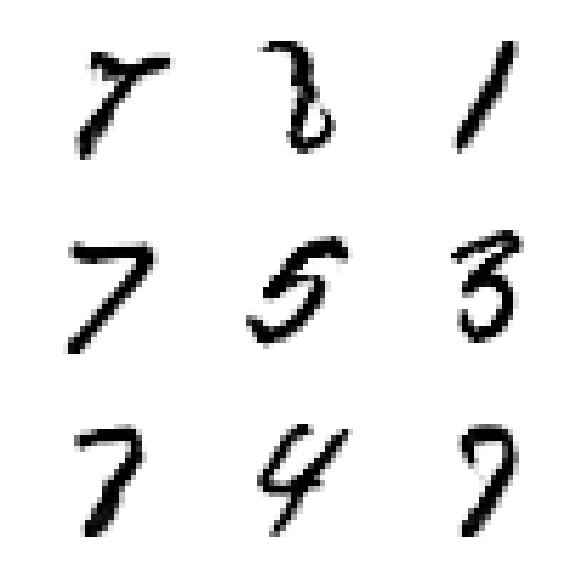 7 8 1
7 5 3
7 4 9